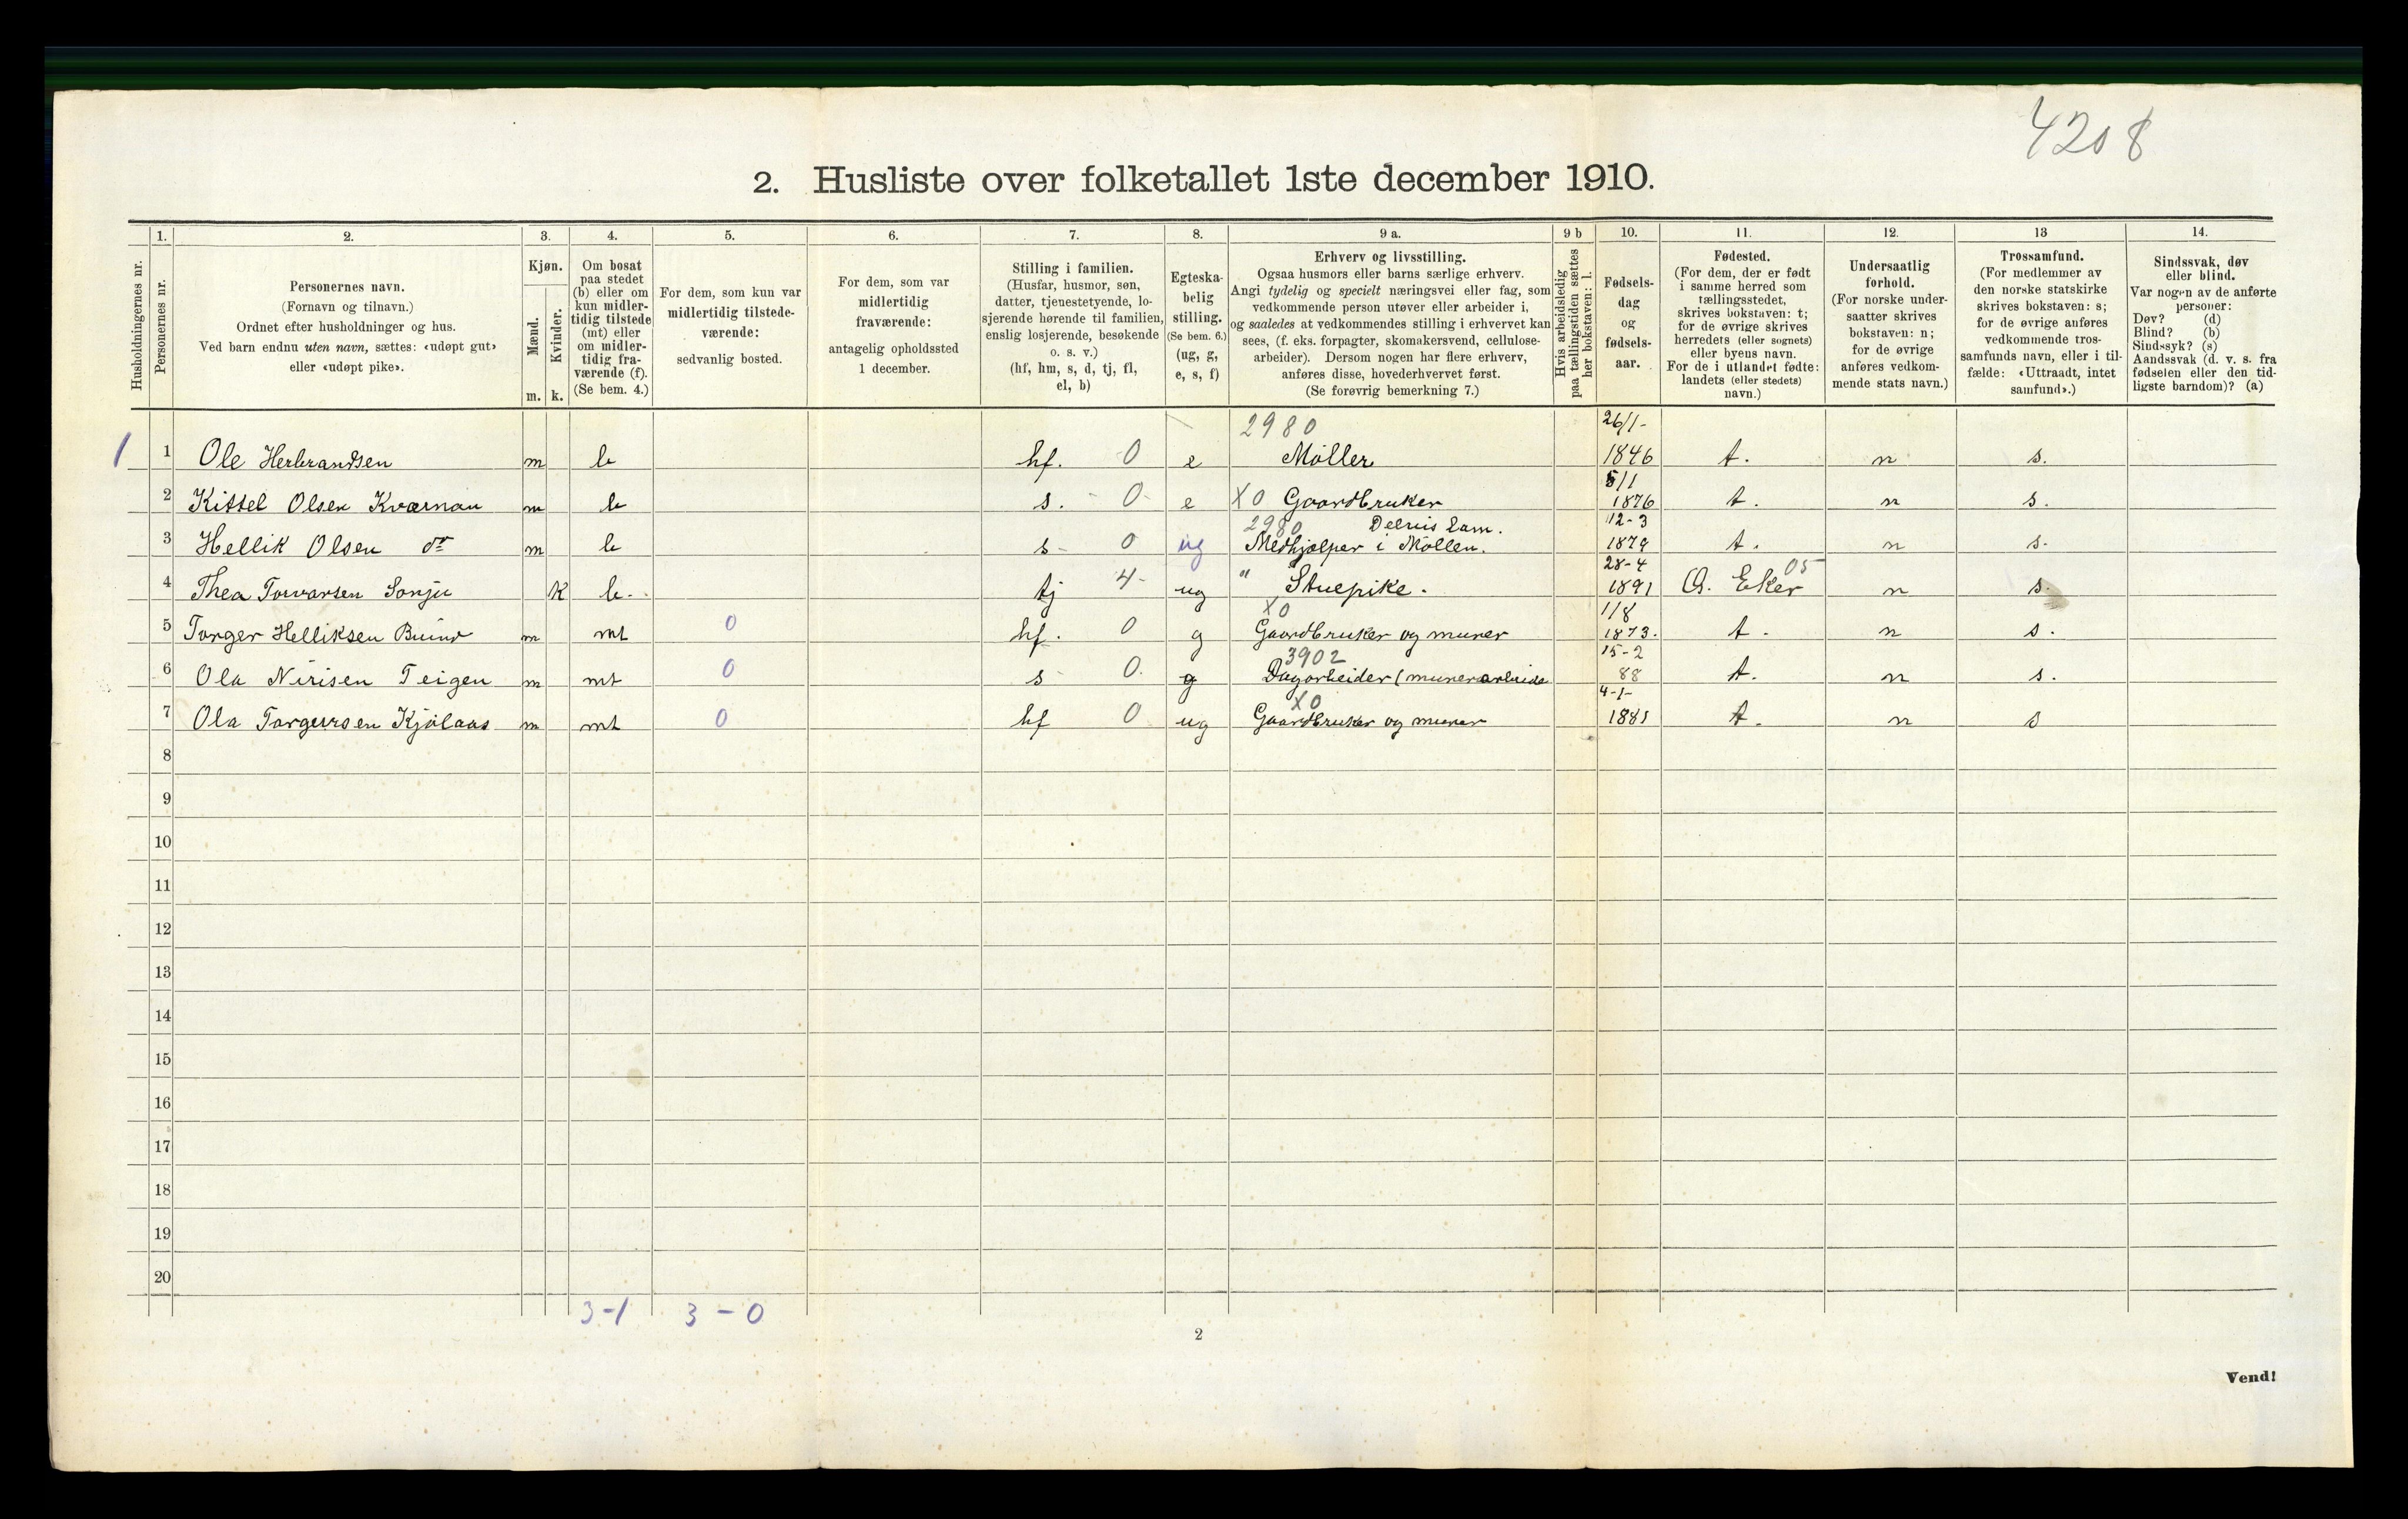 4208
2. Husliste over folketallet 1ste december 1910.
1. 2. 3. 4. 5. 6. 7. 8. 9 a. 9 b 10. 11. 12. 13 14.
Husholdningernes nr.
Personernes nr.
Personernes navn.
(Fornavn og tilnavn.)
Ordnet efter husholdninger og hus.
Ved barn endnu uten navn, sættes: «udøpt gut»
eller «udøpt pike».
Kjøn.
Mænd.
Kvinder.
m. k.
Om bosat
paa stedet
(b) eller om
kun midler-
tidig tilstede
(mt) eller
om midler-
tidig fra-
værende (f).
(Se bem. 4.)
For dem, som kun var
midlertidig tilstede-
værende:
sedvanlig bosted.
For dem, som var
midlertidig
fraværende:
antagelig opholdssted
1 december.
Stilling i familien.
(Husfar, husmor, søn,
datter, tjenestetyende, lo-
sjerende hørende til familien,
enslig losjerende, besøkende
o. s. v.)
(hf, hm, s, d, tj, fl,
el, b)
Egteska-
belig
stilling.
(Se bem. 6.)
(ug, g,
e, s, f)
Erhverv og livsstilling.
Ogsaa husmors eller barns særlige erhverv.
Angi tydelig og specielt næringsvei eller fag, som
vedkommende person utøver eller arbeider i,
og saaledes at vedkommendes stilling i erhvervet kan
sees, (f. eks. forpagter, skomakersvend, cellulose-
arbeider). Dersom nogen har flere erhverv,
anføres disse, hovederhvervet først.
(Se forøvrig bemerkning 7.)
Hvis arbeidsledig
paa tællingstiden sættes
her bokstaven: l.
Fødsels-
dag
og
fødsels-
aar.
Fødested.
(For dem, der er født
i samme herred som
tællingsstedet,
skrives bokstaven: t;
for de øvrige skrives
herredets (eller sognets)
eller byens navn.
For de i utlandet fødte:
landets (eller stedets)
navn.)
Undersaatlig
forhold.
(For norske under-
saatter skrives
bokstaven: n;
for de øvrige
anføres vedkom-
mende stats navn.)
Trossamfund.
(For medlemmer av
den norske statskirke
skrives bokstaven: s;
for de øvrige anføres
vedkommende tros-
samfunds navn, eller i til-
fælde: «Uttraadt, intet
samfund».)
Sindssvak, døv
eller blind.
Var nogen av de anførte
personer:
Døv? (d)
Blind? (b)
Sindssyk? (s)
Aandssvak (d. v. s. fra
fødselen eller den tid-
ligste barndom)? (a)
2980 26/1-
1 1 Ole Herbrandsen m b hf. 0 e Møller 1846 t. n s.
5/1
2 Kittel Olsen Kværnan m b s. - 0- e X0 Gaardbruker 1876 t. n s.
2980 Delvis Lam. 12-3
3 Hellik Olsen do m b s- 0 ug Medhjælper i Møllen. 1879 t. n s.
28-4 05
4 Thea Torvarsen Sonju K b- tj 4- ug " Stuepike. 1891 Ø. Eker n s.
X0 1/8
5 Torger Helliksen m mt 0 hf. 0 g Gaardbruker og murer 1873. t. n s.
3902 15-2
6 Ola Nirisen Teigen m mt 0 s 0. g Dagarbeider (murerarbeide 88 t. n s.
X0 4-1-
7 Ola Torgersen Kjølaas m mt 0 hf 0 ug Gaardbruker og murer 1881 t. n s
8
9
10
11
12
13
14
15
16
17
18
19
20
3-1 3-0
2
Vend!